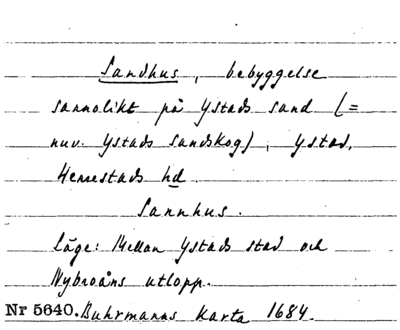 Sandhus, bebyggelse
sannolikt på Ystads sand (=
nuv. Ystads sandskog), Ystad,
Herrestads hd.
Sannhus.
Läge: Mellan Ystads stad och
Nybroåns utlopp.
Nr 5640. Buhrmanns karta 1684.